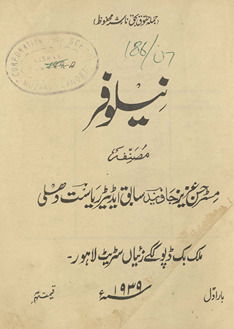 (جملہ حقوق بحق ناشر محفوظ)
186/07
نیلوفر
مصنفہ
مسٹر حسن عزیز جاوید سابق ایڈیٹر ریاست دھلی
ملک بک ڈپو لگے زئیاں سٹریٹ لاہور۔
۱۹۳۹ء
بار اول
قیمت